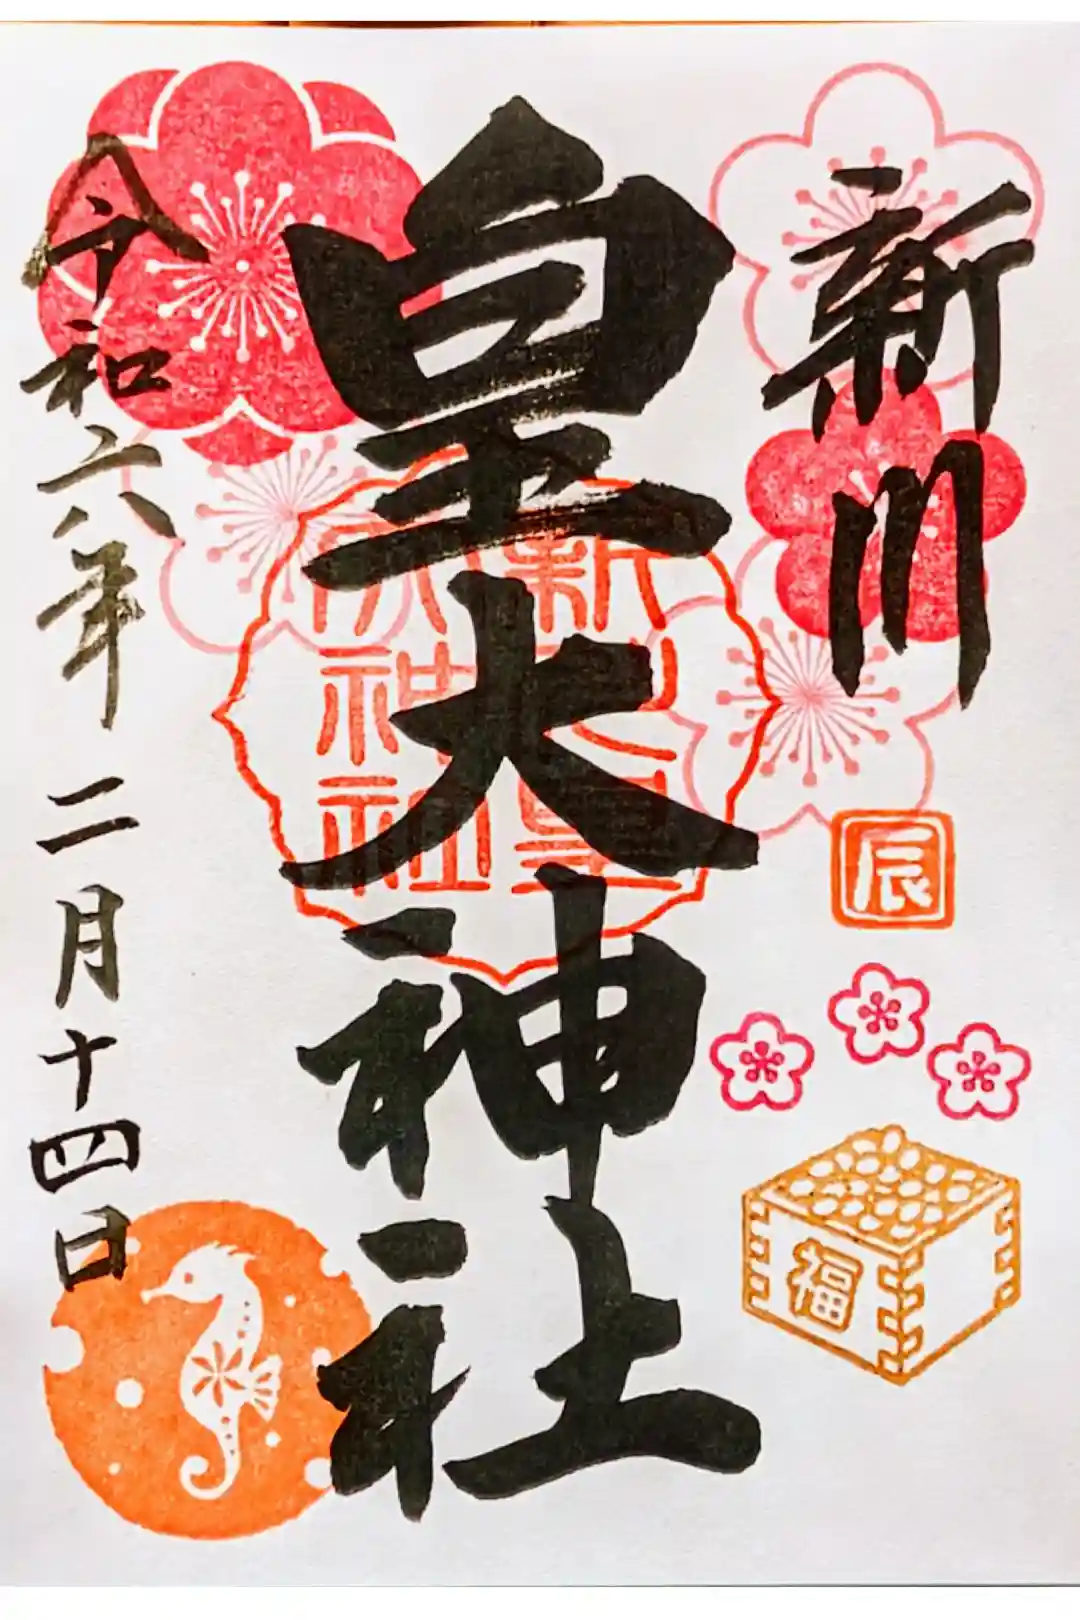 新川
皇大神社
令和六年 二月十四日
新川皇
大神社
辰
福